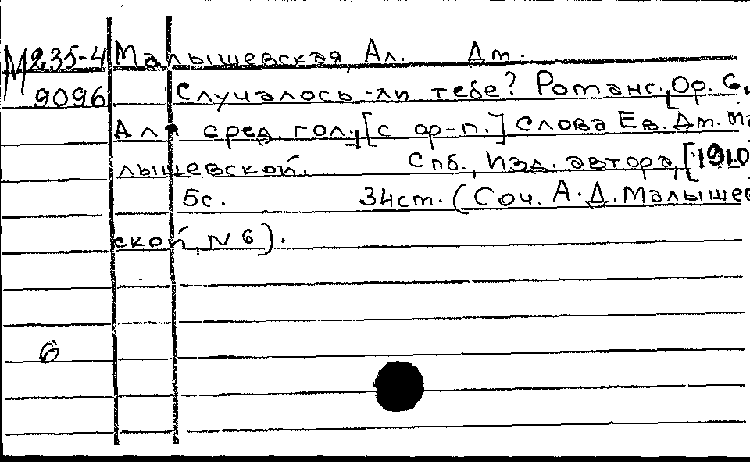 М235-4 Малышевская, Ал. Дм.
9096 Случалось-ли тебе? Романс. Ор. 6,
Для сред. гол. [с ф-п.] Слова Ев. Дм. Ма
лышевской. Спб., Изд. автора, [1910
5с. 34см. (Соч. А.Д. Малышев
ской, № 6).
6